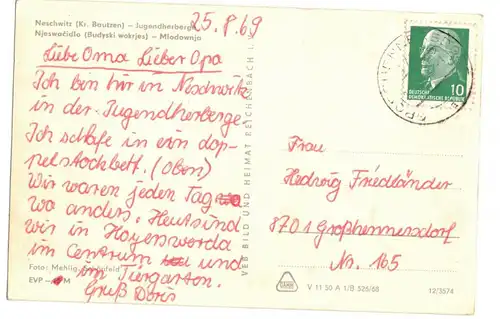 Neschwitz (Kr. Bautzen) – Jugendherberge
Njeswačidło (Budyski wokrjes) – Młodownja
25.8.69
Liebe Oma Lieber Opa
Ich bin hir in Neschwitz
in der Jugendherberge.
Ich schlafe in ein dop-
pelstockbett. (Oben)
Wir waren jeden Tag
wo anders. Heut sind
wir in Hoyerswerda
im Centrum und
im Tiergarten.
Gruß Doris
Foto: Mehlig,
EVP – M
VEB BILD UND HEIMAT REICHENBACH I. V.
DEUTSCHE
DEMOKRATISCHE REPUBLIK
10
Frau
Hedwig Friedländer
8701 Großhennersdorf
Nr. 165
V 11 50 A 1/B 525/68
12/3574